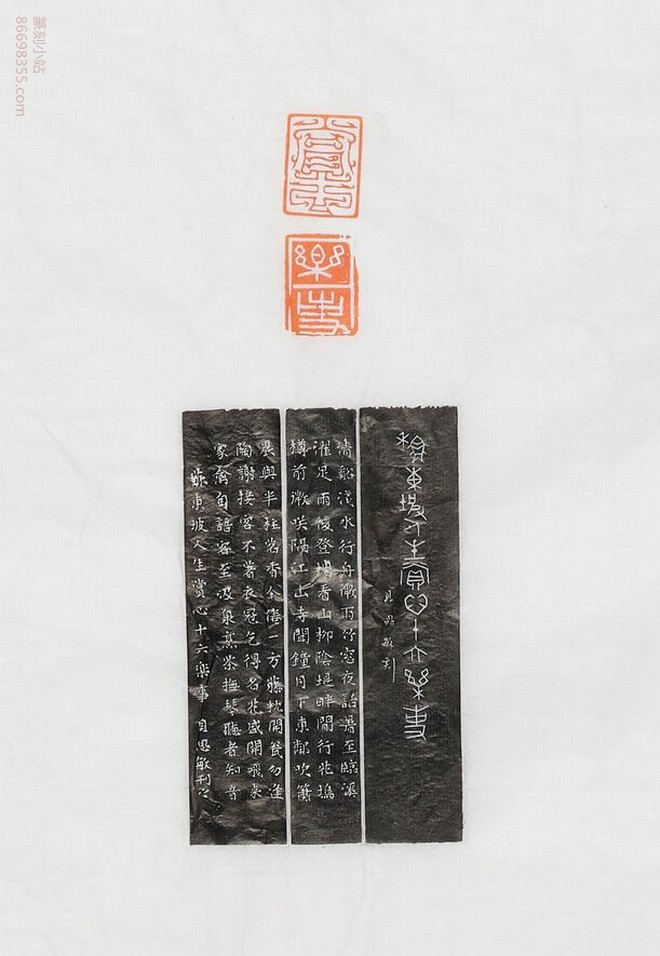 篆刻小站
86698355.com
賞心
樂事
蘇東坡人生賞心十六樂事
思敏刻
清谿淺水行舟微雨竹窗夜話暑至臨溪
濯足雨後登樓看山柳陰堤畔閒行花塢
樽前微笑隔江山寺聞鐘月下東鄰吹簫
晨興半炷茗香午倦一方藤枕開甕勿逢
陶謝接客不著衣冠乞得名花盛開飛來
家禽自語客至汲泉煮茶撫琴聽者知音
蘇東坡人生賞心十六樂事 思敏刊之